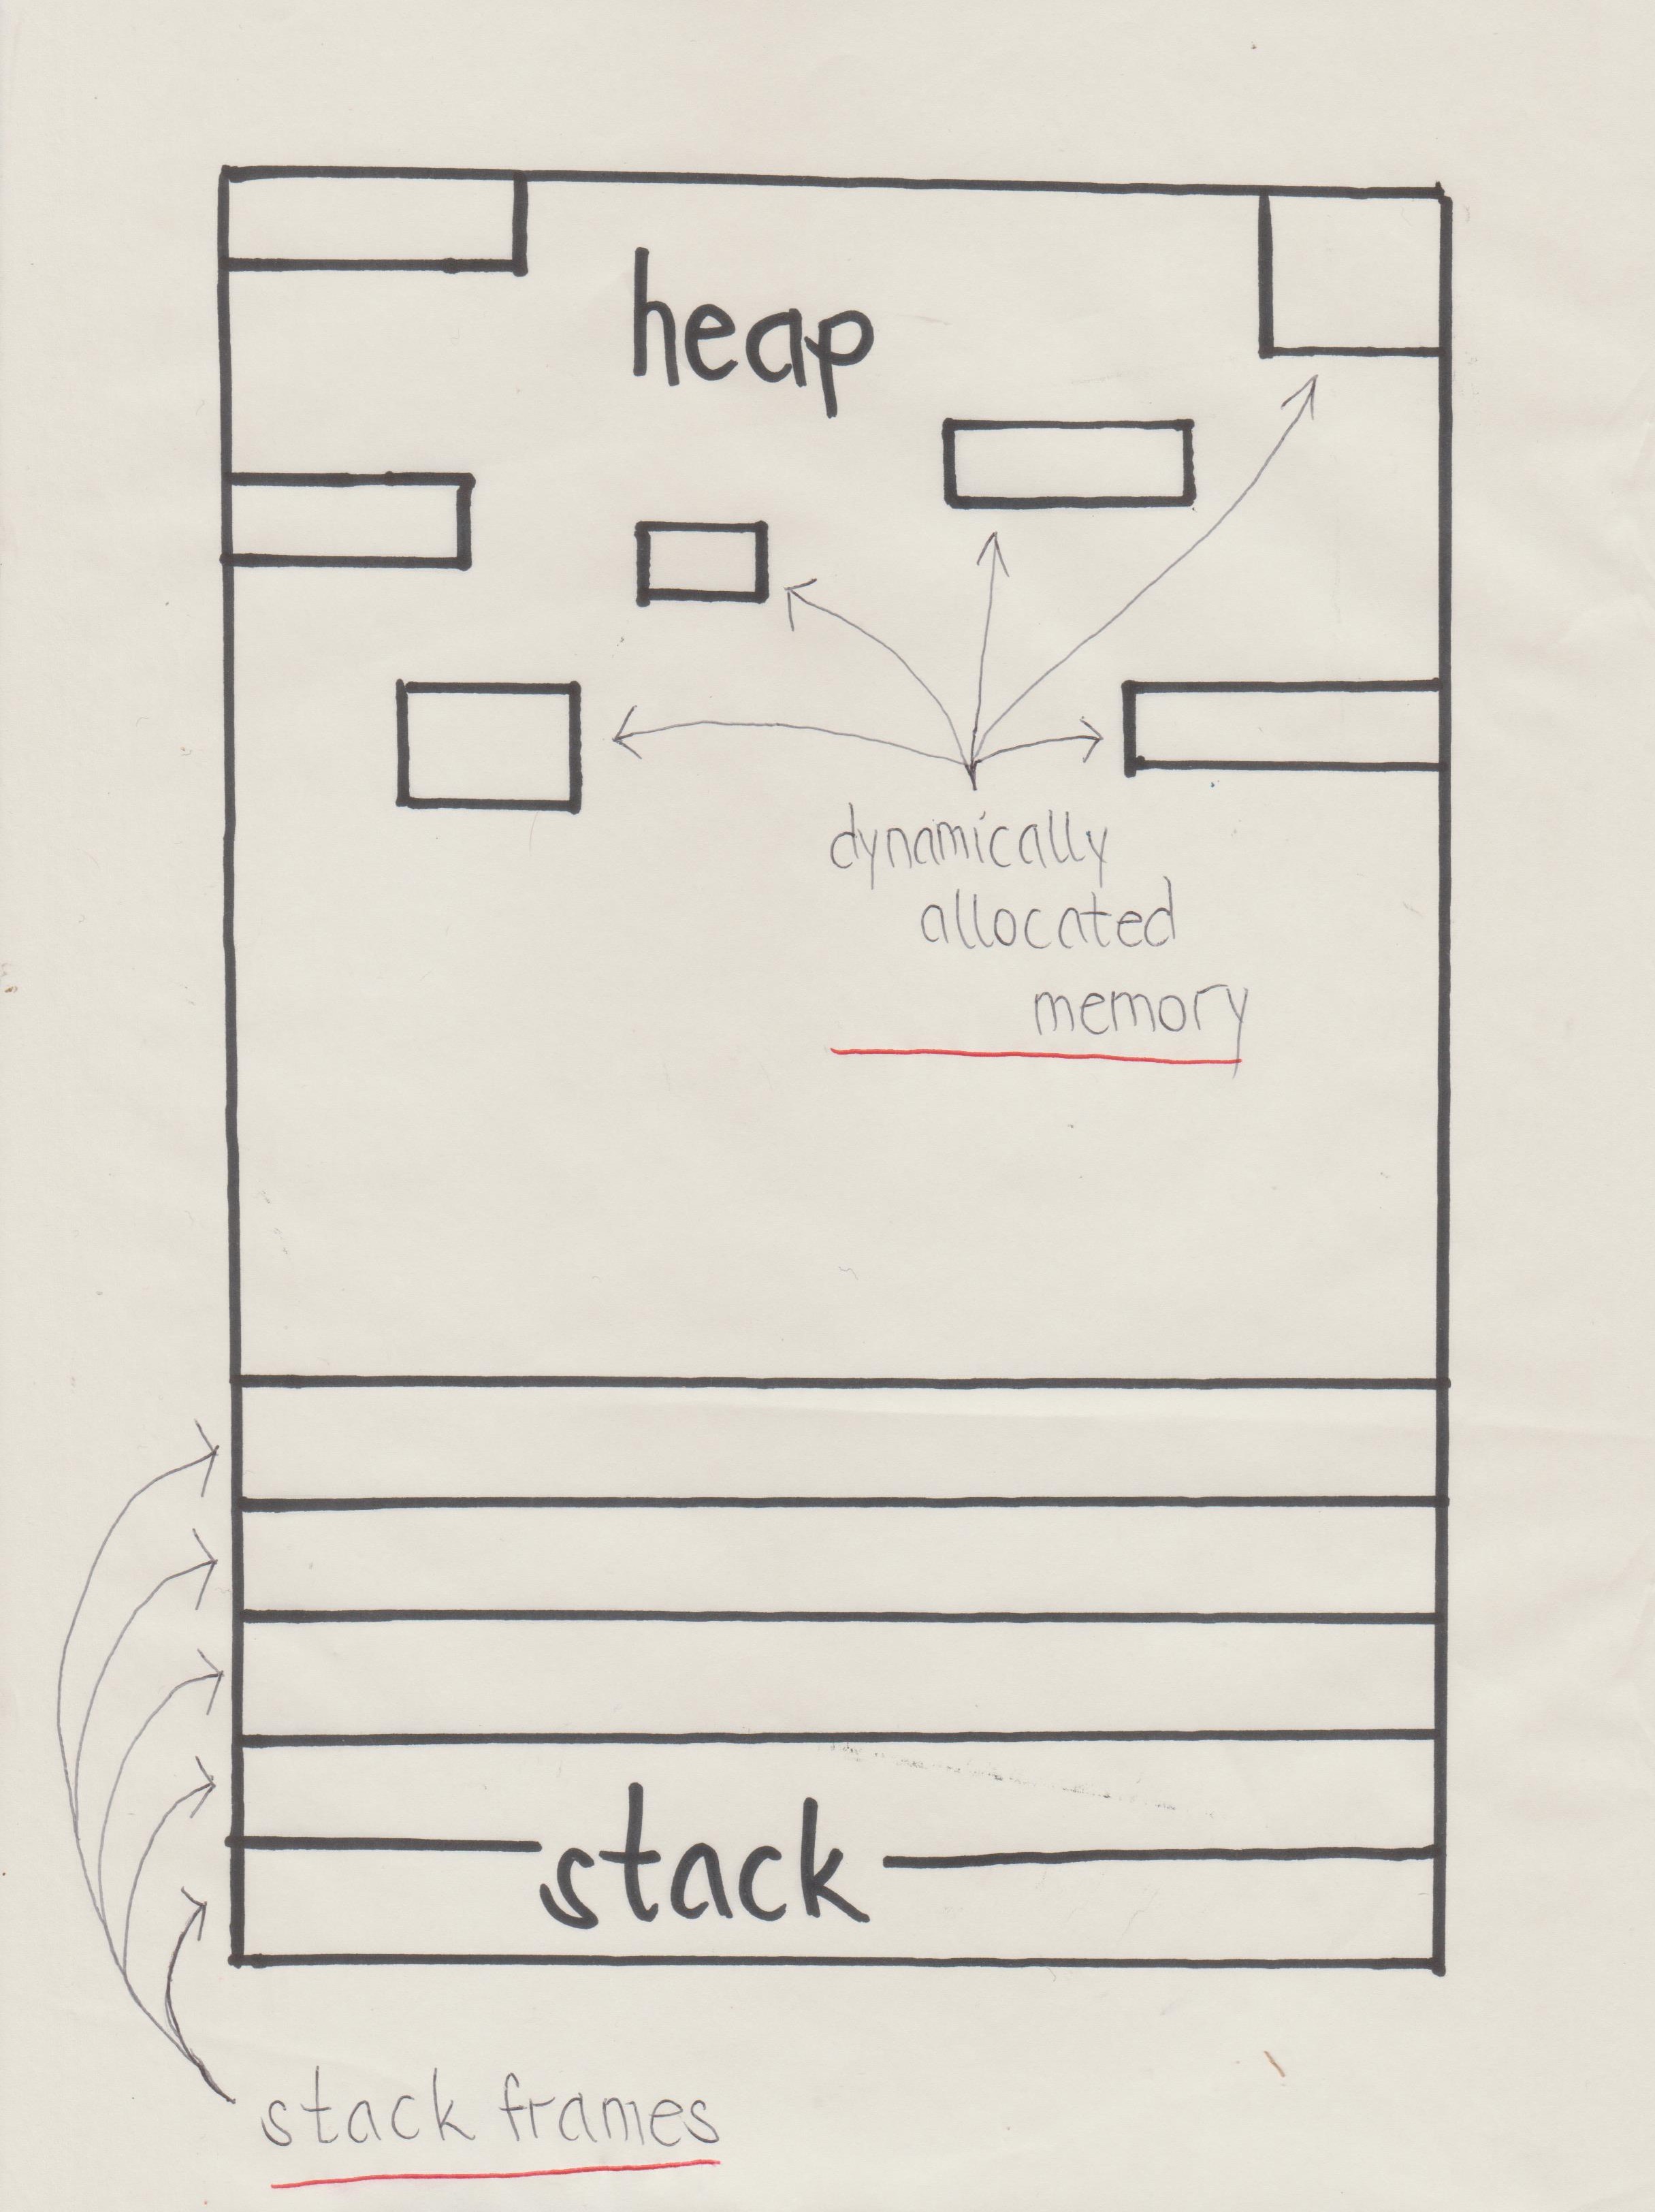 heap
dynamically
allocated
memory
stack
stack frames